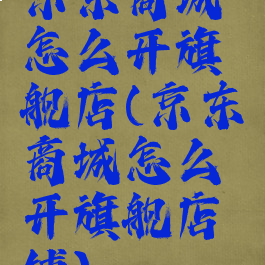 京东商城
怎么开旗
舰店(京东
商城怎么
开旗舰店
铺)